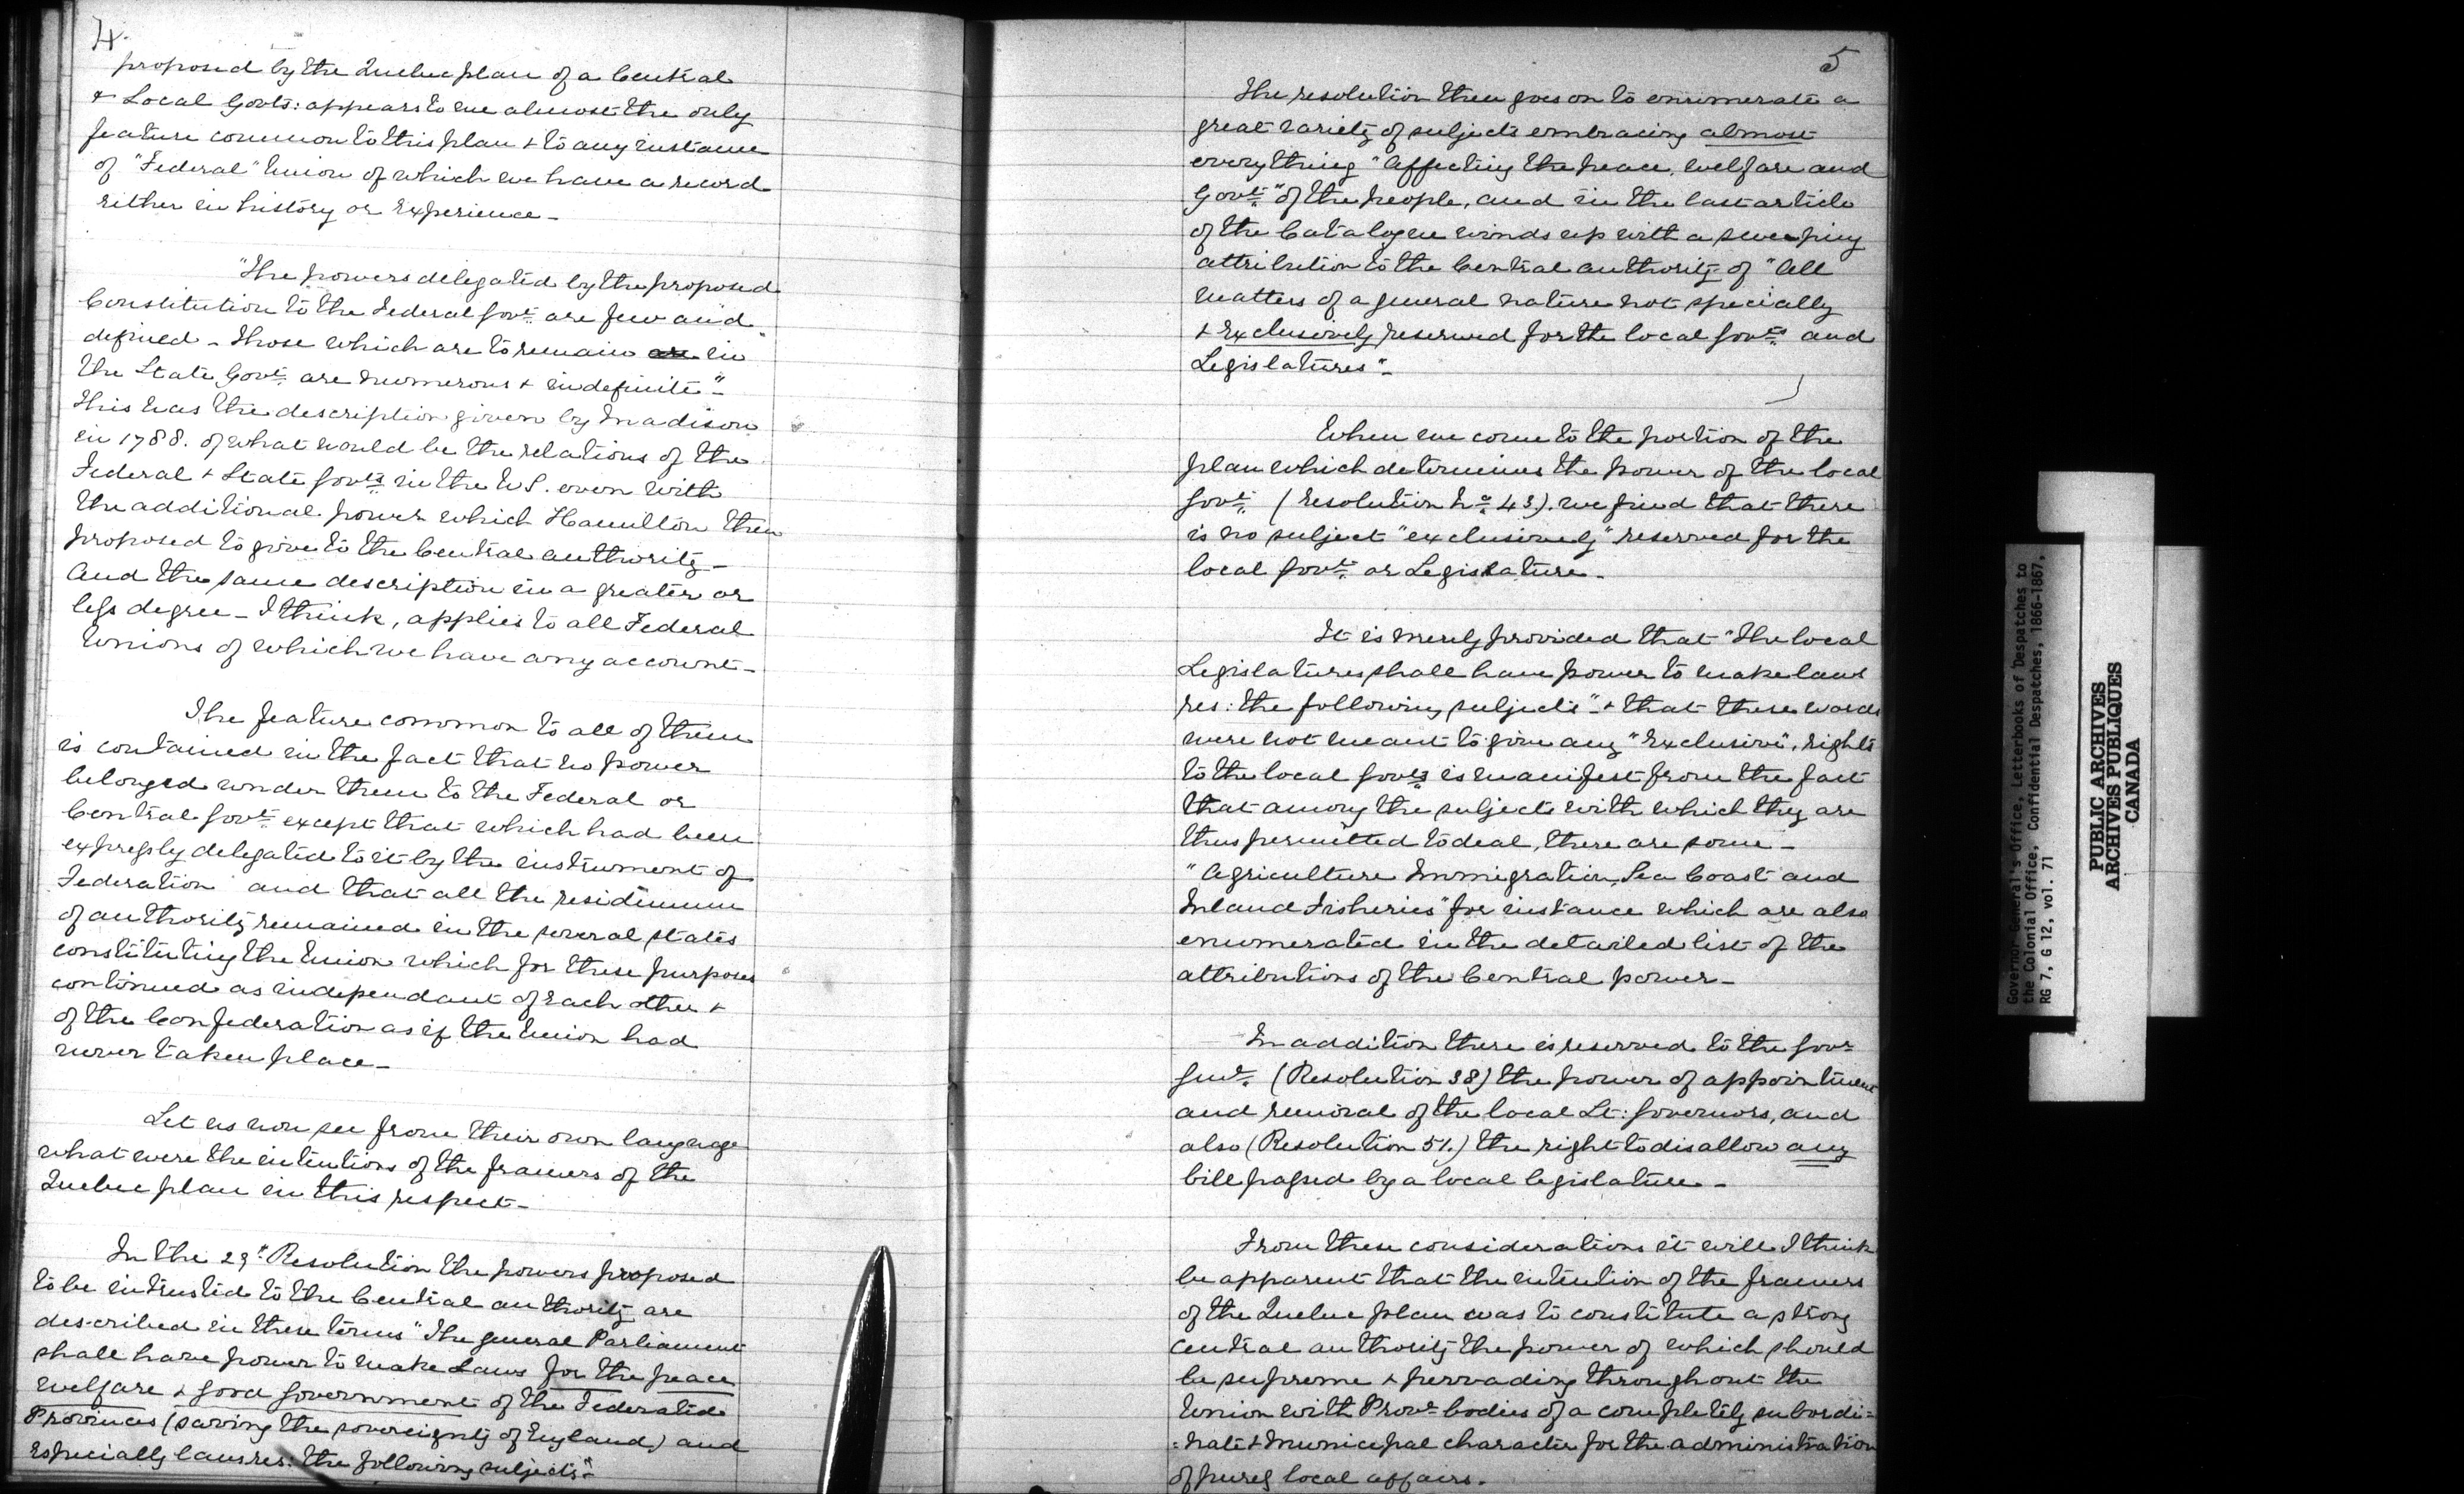 4.
proposed by the Quebec plan of a Central
& Local Govts: appears to me almost the only
feature common to this plan & to any instance
of "Federal" Union of which we have a record
either in history or experience -
"The powers delegated by the proposed
Constitution to the Federal Govt. are few and
defined - Those which are to remain are in
the State Govt. are numerous & indefinite" -
This was the description given by Madison
in 1788. of what would be the relations of the
Federal & State Govts. in the U S. even with
the additional power which Hamilton then
proposed to give to the Central authority -
And the same description in a greater or
less degree - I think, applies to all Federal
Unions of which we have any account -
The feature common to all of them
is contained in the fact that no power
belonged under them to the Federal or
Central Govt. except that which had been
expressly delegated to it by the instrument of
Federation and that all the residuum
of authority remained in the several states
constituting the Union which for these purposes
continued as independant of each other &
of the Confederation as if the Union had
never taken place -
Let us now see from their own language
what were the intentions of the framers of the
Quebec plan in this respect -
In the 29th Resolution the powers proposed
to be intrusted to the Central authority are
described in these terms "The general Parliament
shall have power to make Laws for the peace
welfare & good government of the Federated
Provinces (saving the sovereignty of England) and
especially laws res: the following subjects" -
5
The resolution then goes on to enumerate a
great variety of subjects embracing almost
everything "affecting the peace, welfare and
Govt." of the people, and in the last article
of the Catalogue winds up with a sweeping
attribution to the Central authority of "all
matters of a general nature not specially
& exclusively reserved for the local Govts. and
Legislatures" -
When we come to the portion of the
plan which determines the power of the local
Govt. (Resolution No. 43). we find that there
is no subject "exclusively" reserved for the
local Govt. or Legislature -
It is merely provided that "The local
Legislatures shall have power to make laws
res: the following subjects" - & that these words
were not meant to give any "exclusive", rights
to the local Govts. is manifest from the fact
that among the subjects with which they are
thus permitted to deal, there are some -
"Agriculture Immigration, Sea Coast and
Inland Fisheries" for instance which are also
enumerated in the detailed list of the
attributions of the Central power -
In addition there is reserved to the Govr
Genl. (Resolution 38) the power of appointment
and removal of the local Lt: Governors, and
also (Resolution 51.) the right to disallow any
bill passed by a local legislature -
From these considerations it will I think
be apparent that the intention of the framers
of the Quebec plan was to constitute a strong
central authority the power of which should
be supreme & pervading throughout the
Union with Provl bodies of a completely subordi=
=nate & Municipal character for the administration
of purely local affairs.
Governor General's Office, Letterbooks of Despatches to
the Colonial Office, Confidential Despatches, 1866-1867,
RG 7, G 12, vol. 71
PUBLIC ARCHIVES
ARCHIVES PUBLIQUES
CANADA